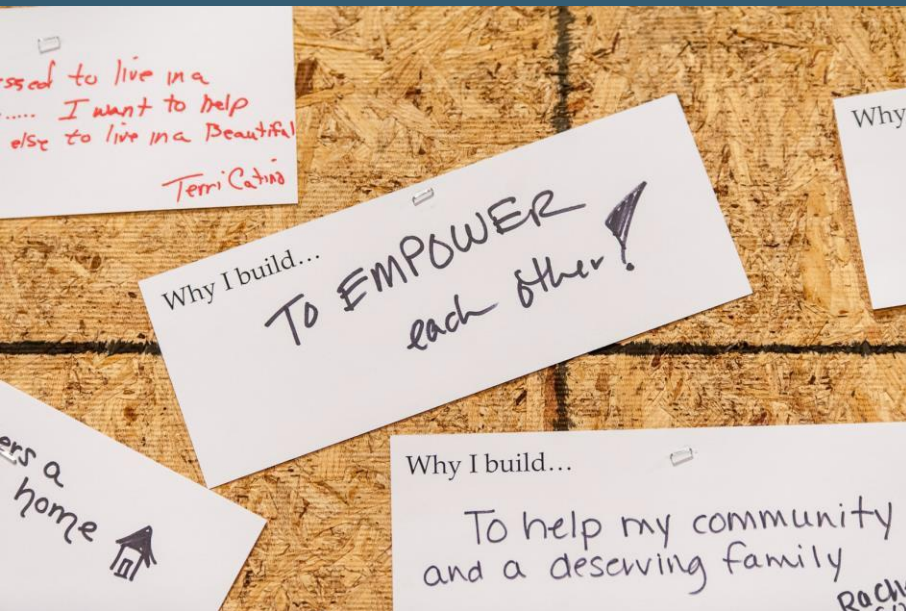 to live in a
..... I want to help
else to live in a Beautiful
Terri
Why I build...
To EMPOWER
each other!
Why
a
home
Why I build...
To help my community
and a deserving family